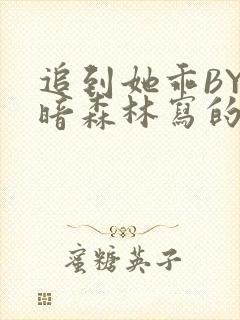 追到她乖BY
暗森林寫的
蜜糖英子